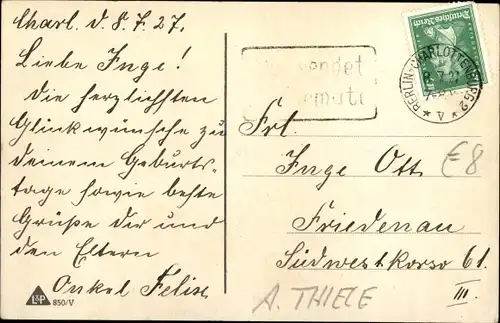 Charl. d. 8.7.27.
Liebe Inge!
Die herzlichsten
Glückwünsche zu
deinem Geburts-
tage sowie beste
Grüße dir und
den Eltern
Onkel Felix
L&P
850/V
Deutsches Reich
BERLIN-CHARLOTTENBURG 2
Frl.
Inge Ott
Friedenau
Südwestkorso 61.
III.
€8
A. THIELE